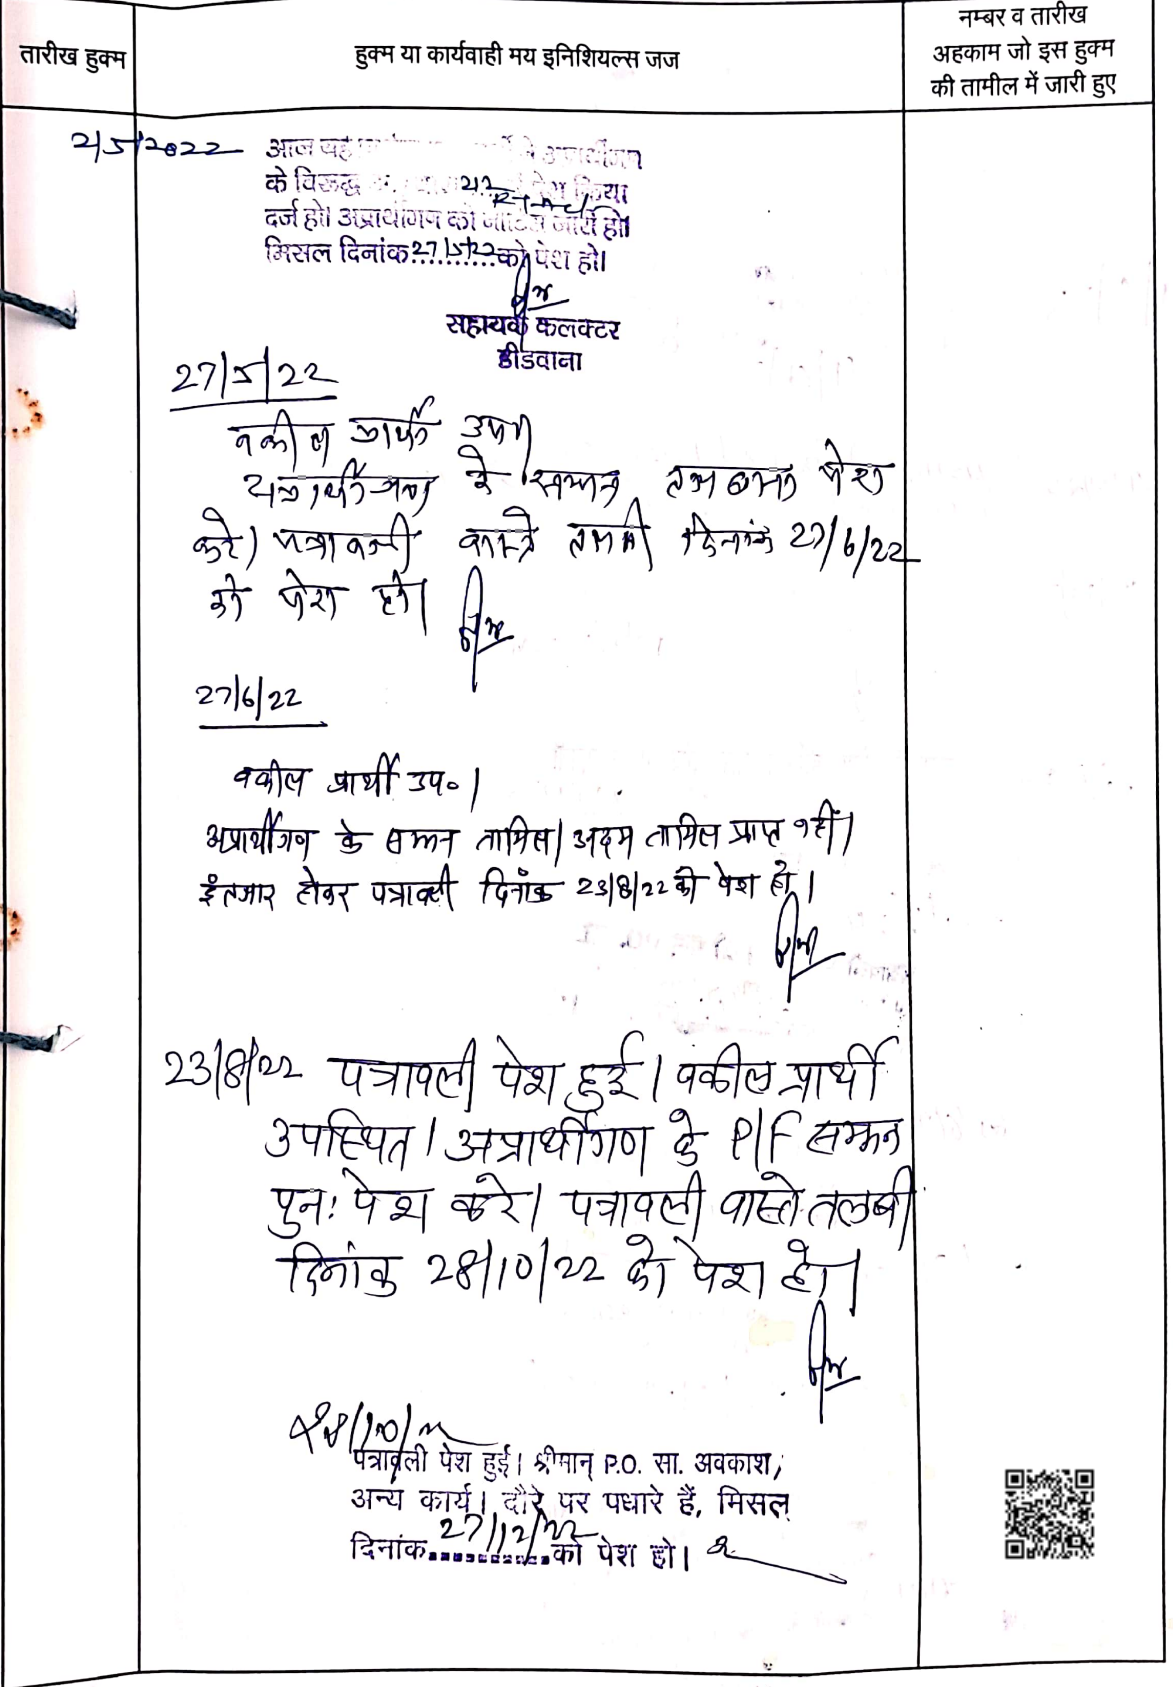 तारीख हुक्म
हुक्म या कार्यवाही मय इनिशियल्स जज
नम्बर व तारीख
अहकाम जो इस हुक्म
की तामील में जारी हुए
2/5/2022
आज यह
के विरूद्ध 212 पेश किया
दर्ज हो। अप्रार्थीगण को नोटिस जारी हो।
मिसल दिनांक 27/5/22 को पेश हो।
सहायक कलक्टर
डीडवाना
27/5/22
वकील प्रार्थी उप।
अप्रार्थीगण के सम्मन पेश
करे। पत्रावली वास्ते तलबी दिनांक 27/6/22
को पेश हो।
27/6/22
वकील प्रार्थी उप०।
अप्रार्थीगण के सम्मन तामिल/अदम तामिल प्राप्त नहीं।
इंतजार होकर पत्रावली दिनांक 23/8/22 को पेश हो।
23/8/22 पत्रावली पेश हुई। वकील प्रार्थी
उपस्थित। अप्रार्थीगण के P/F सम्मन
पुनः पेश करे। पत्रावली वास्ते तलबी
दिनांक 28/10/22 को पेश हो।
28/10/22
पत्रावली पेश हुई। श्रीमान् P.O. सा. अवकाश,
अन्य कार्य। दौरे पर पधारे हैं, मिसल
दिनांक 27/12/22 को पेश हो।